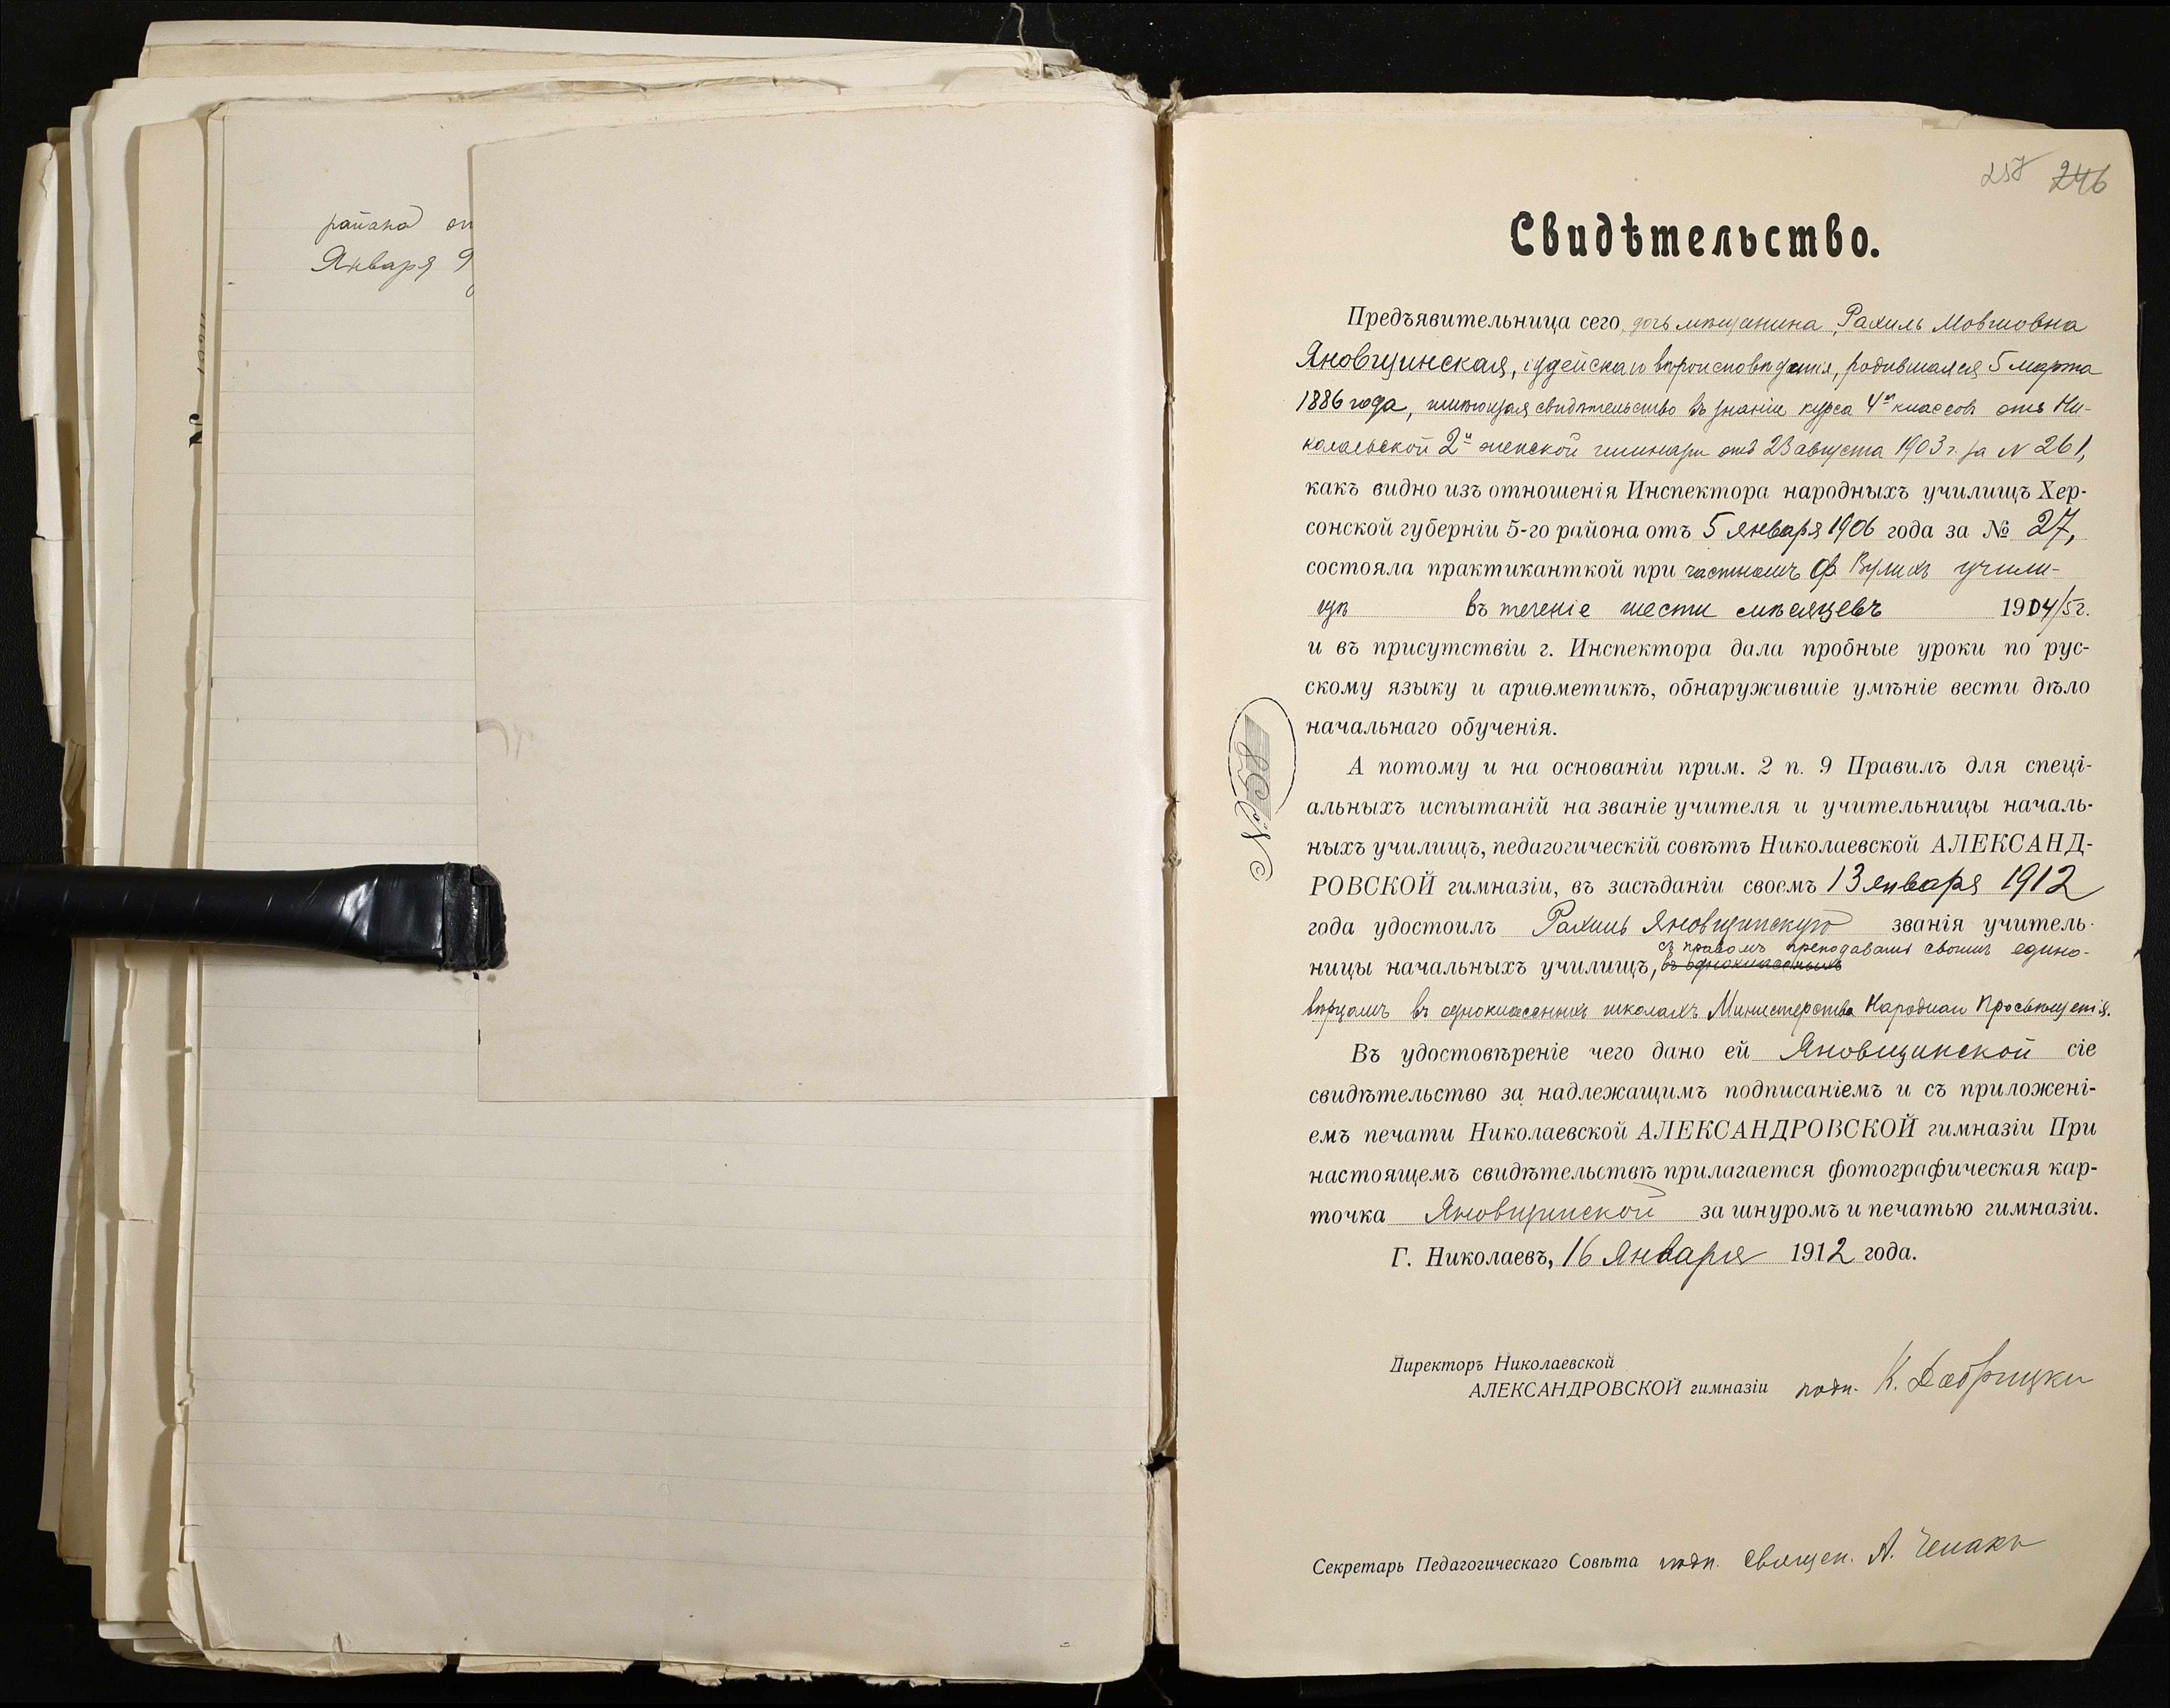 района от
Января 9
№
246
Свидѣтельство.
Предъявительница сего, дочь мѣщанина, Рахиль Мовшовна
Яновщинская, іудейскаго вѣроисповѣданія, родившаяся 5 марта
1886 года, имѣющая свидѣтельство въ знаніи курса 4х классовъ отъ Ни-
колаевской 2й женской гимназіи отъ 23 августа 1903 г. за N 261,
какъ видно изъ отношенія Инспектора народныхъ училищъ Хер-
сонской губерніи 5-го района отъ 5 января 1906 года за № 27,
состояла практиканткой при частномъ Ф. Вулихъ учили-
щѣ въ теченіе шести мѣсяцевъ 1904/5 г.
и въ присутствіи г. Инспектора дала пробные уроки по рус-
скому языку и ариѳметикѣ, обнаружившіе умѣніе вести дѣло
начальнаго обученія.
А потому и на основаніи прим. 2 п. 9 Правилъ для спеці-
альныхъ испытаній на званіе учителя и учительницы началь-
ныхъ училищъ, педагогическій совѣтъ Николаевской АЛЕКСАНД-
РОВСКОЙ гимназіи, въ засѣданіи своемъ 13 января 1912
года удостоилъ Рахиль Яновщинскую званія учитель-
съ правомъ преподаванія своимъ едино-
ницы начальныхъ училищъ, въ одноклассныхъ
вѣрцамъ въ одноклассныхъ школахъ Министерства Народнаго Просвѣщенія.
Въ удостовѣреніе чего дано ей Яновщинской сіе
свидѣтельство за надлежащимъ подписаніемъ и съ приложені-
емъ печати Николаевской АЛЕКСАНДРОВСКОЙ гимназіи При
настоящемъ свидѣтельствѣ прилагается фотографическая кар-
точка Яновщинской за шнуромъ и печатью гимназіи.
Г. Николаевъ, 16 Января 1912 года.
Директоръ Николаевской
АЛЕКСАНДРОВСКОЙ гимназіи подп. К.
Секретарь Педагогическаго Совѣта подп. Священ. А.
№